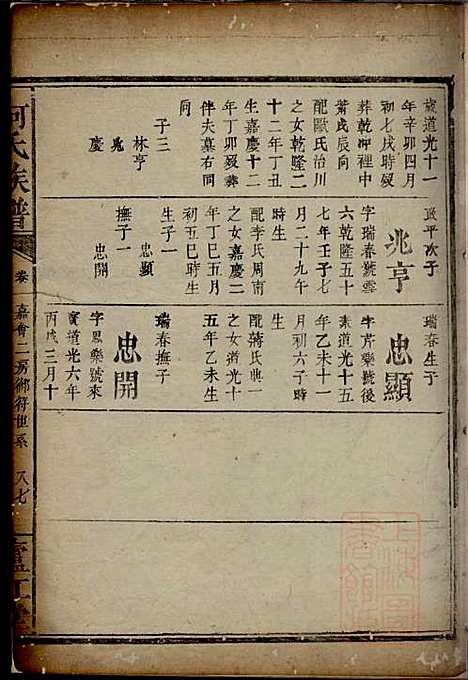 歲道光十一
年辛卯四月
初七戌時歿
葬乾冲裡中
蕭戌辰向
配歐氏治川
之女乾隆二
十二年丁丑
生嘉慶十二
年丁卯歿葬
伴夫墓右同
向
子三
林亨
兆
慶
政平次子
兆亨
字瑞春號雲
六乾隆五十
七年壬子七
月二十九午
時生
配李氏周南
之女嘉慶二
年丁巳五月
初五巳時生
生子一
忠顯
撫子一
忠開
瑞春生子
忠顯
字芹藥號後
素道光十五
年乙未十一
月初六子時
生
配蔣氏典一
之女道光十
五年乙未生
瑞春撫子
忠開
字恩藥號來
賓道光六年
丙戌三月十
何氏族譜
卷
嘉會二房御符世系
八七
廬江堂